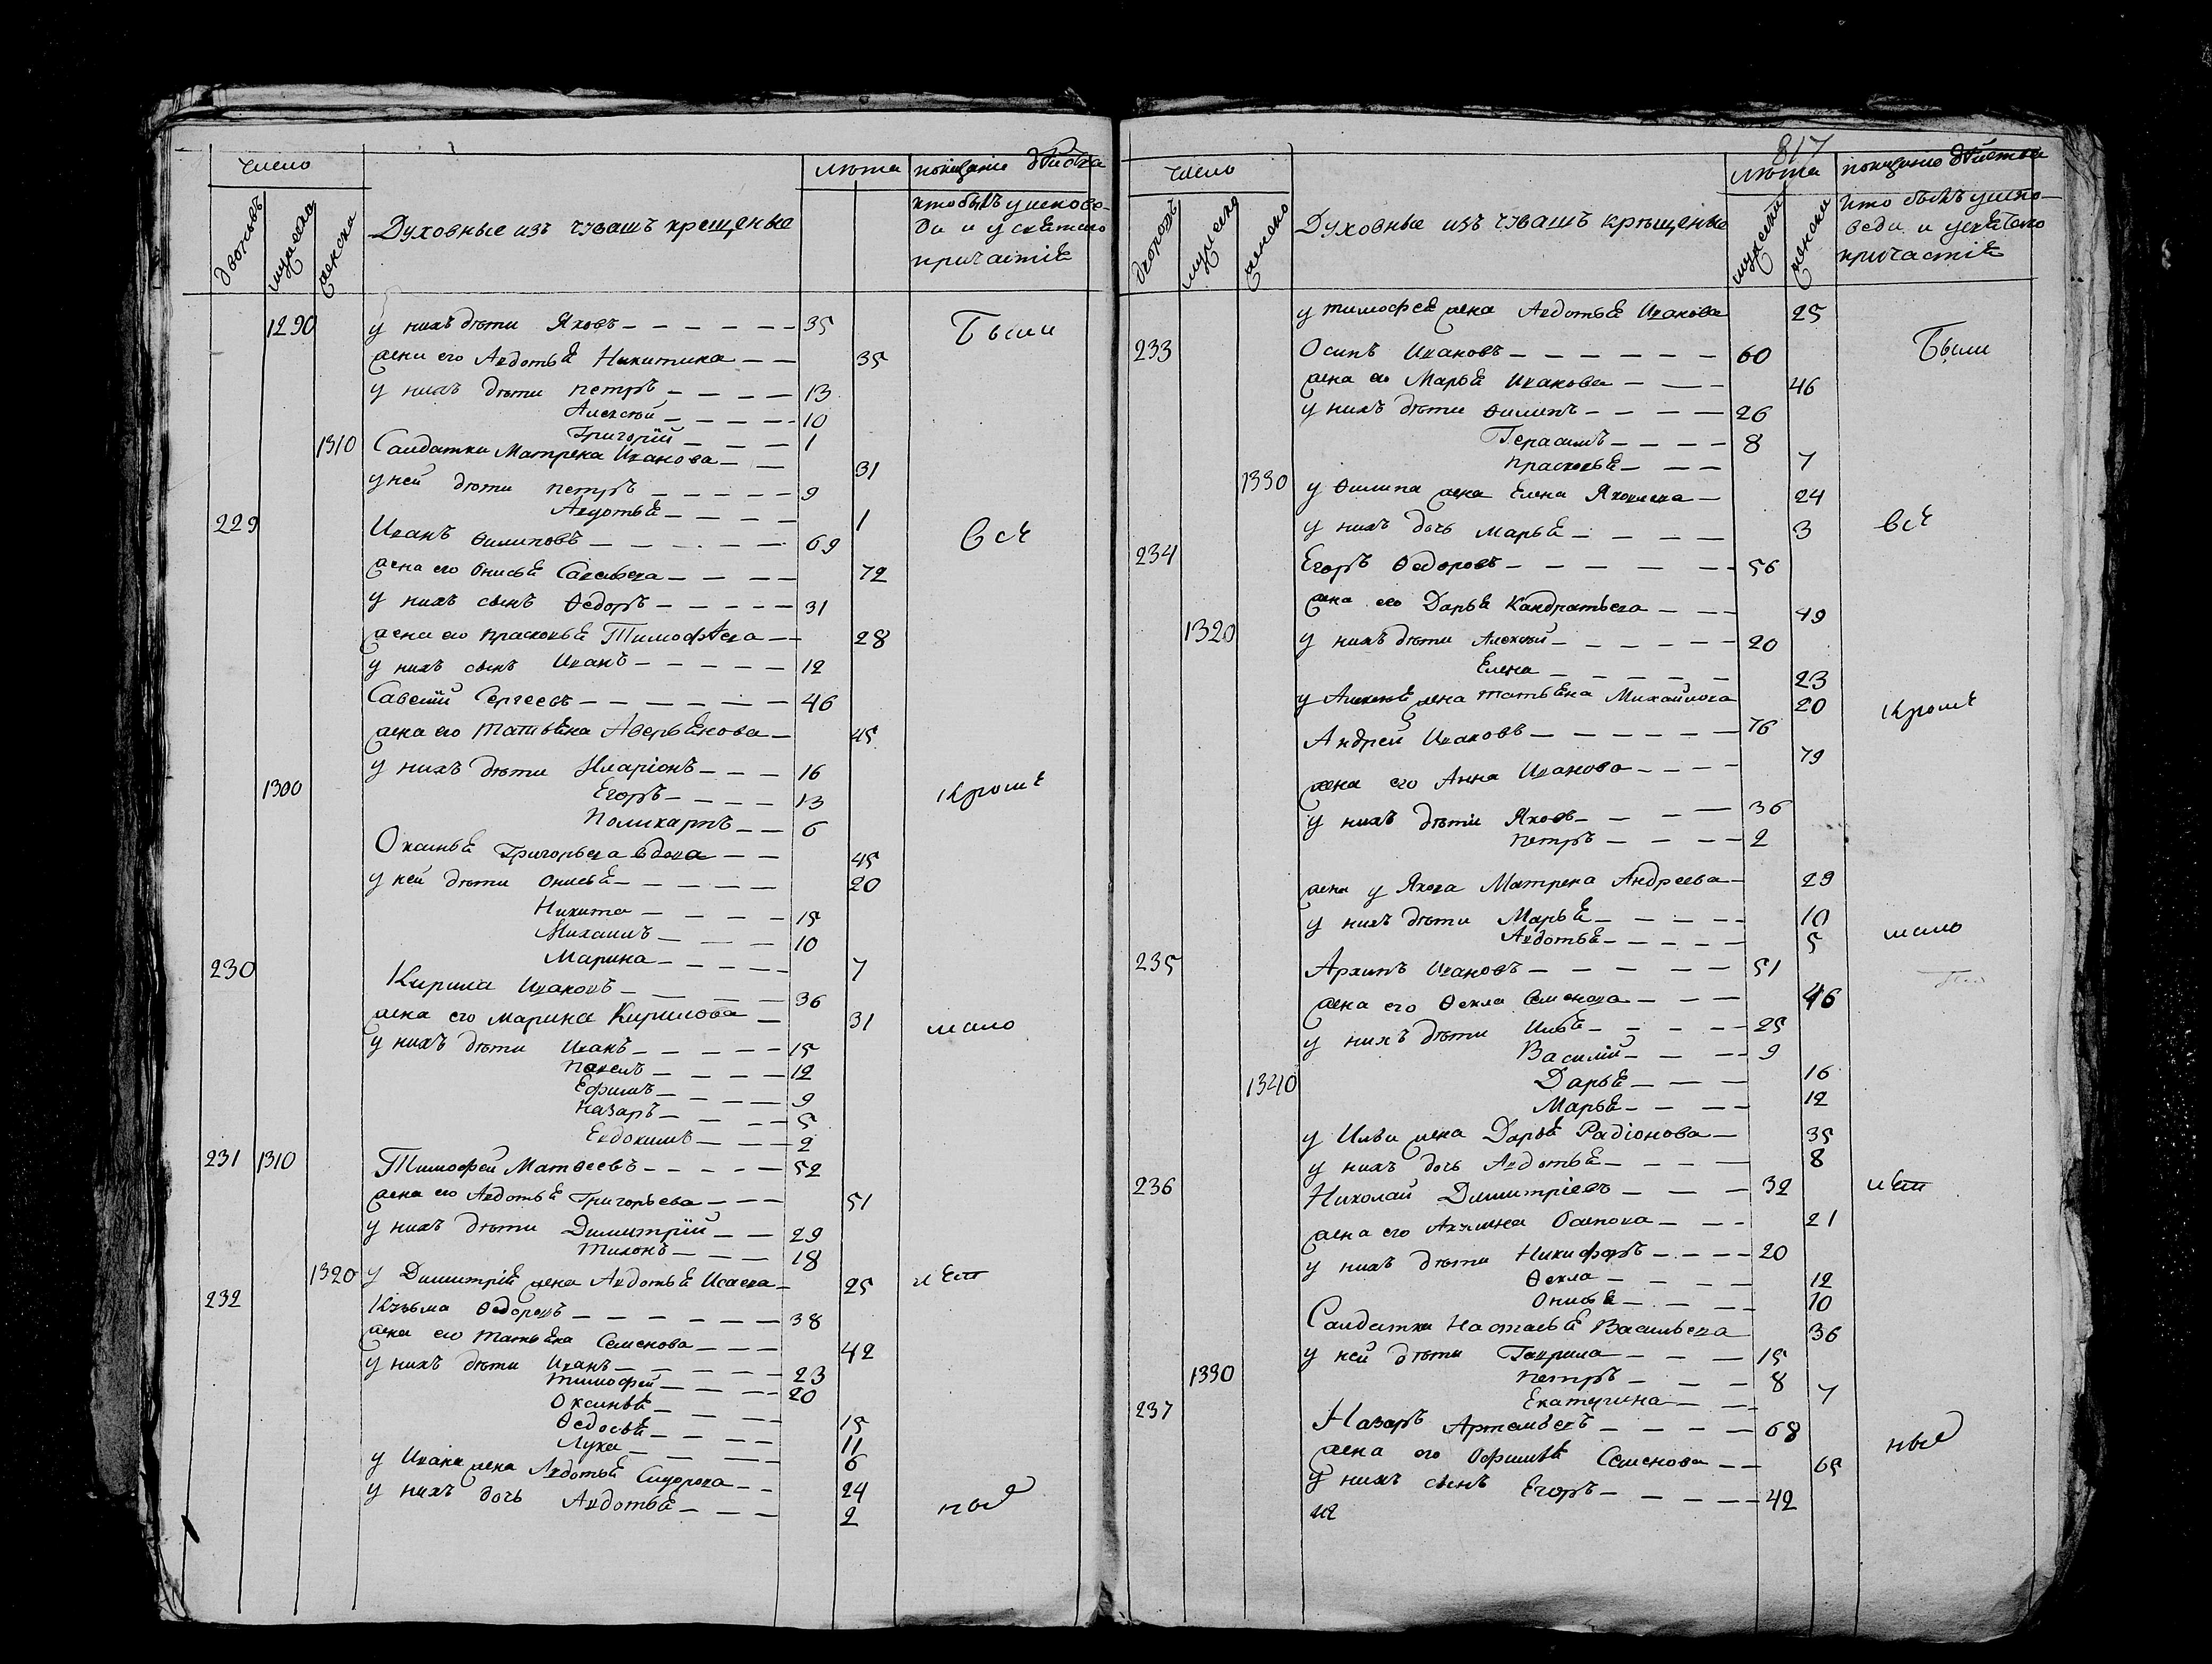 число лѣта показанiе действа
дворовъ мужеска женска Духовные изъ чувашъ крещеные кто былъ у испове-
ди и у святаго
причастiя
1290 у нихъ дѣти Яковъ 35 Были
жена его Авдотья Никитина 35
у нихъ дѣти петръ 13
Алексѣй 10
Григорiй 1
1310 Салдатка Матрена Иванова 31
у ней дѣти петръ 9
Авдотья 1
229 Иванъ Филиповъ 69 всѣ
жена его Онисья Савельева 72
у нихъ сынъ Ѳедоръ 31
жена его прасковья Тимофѣева 28
у нихъ сынъ Иванъ 12
Савелiй Сергеевъ 46
жена его татьяна Аверьянова 45
у нихъ дѣти Илларiонъ 16
1300 Егоръ 13 кромѣ
Поликарпъ 6
Оксинья Григорьева вдова 45
у ней дѣти Онисья 20
Никита 15
Михаилъ 10
Марина 7
230 Кирила Ивановъ 36
жена его марина Кирилова 31 мало
у нихъ дѣти Иванъ 15
павелъ 12
Ефимъ 9
назаръ 5
Евдокимъ 2
231 1310 Тимофей Матвеевъ 52
жена его Авдотья Григорьева 51
у нихъ дѣти Димитрiй 29
тихонъ 18
1320 у Димитрiя жена Авдотья Исаева 25 лѣт
232 Кузьма Ѳедоровъ 38
жена его татьяна Семенова 42
у нихъ дѣти Иванъ 23
тимофей 20
Оксинья 15
Ѳедосья 11
Лукea 6
у Ивана жена Авдотья Сидорова 24
у нихъ дочь Авдотья 2 ныѣ
817
число лѣта показанiе действа
дворовъ мужеско женско Духовные изъ чувашъ крѣщеные мужески женски кто былъ у испо-
веди и у святаго
причастiя
у тимофея жена Авдотья Иванова 25
233 Осипъ Ивановъ 60 Были
жена его Марья Иванова 46
у нихъ дѣти Филипъ 26
Герасимъ 8
прасковья 7
1330 у Филипа жена Елена Яковлева 24
у нихъ дочь Марья 3 всѣ
234 Егоръ Ѳедоровъ 56
жена его Дарья Кандратьева 49
1320 у нихъ дѣти Алексѣй 20
Елена 23
у Алексѣя жена татьяна Михайлова 20 кромѣ
Андрей Ивановъ 76
жена его Анна Иванова 79
у нихъ дѣти Яковъ 36
петръ 2
жена у Якова Матрена Андреева 29
у нихъ дѣти Марья 10
Авдотья 5 мало
235 Архипъ Ивановъ 51
жена его Ѳекла Семенова 46
у нихъ дѣти Илья 25
Василiй 9
1340 Дарья 16
Марья 12
у Ильи жена Дарья Радiонова 35
у нихъ дочь Авдотья 8
236 Николай Димитрiевъ 32 лѣт
жена его Акулина Осипова 21
у нихъ дѣти Никифоръ 20
Ѳекла 12
Онисья 10
Салдатка Настасья Васильева 36
у ней дѣти Гаврила 15
1330 петръ 8
Екатерина 7
237 Назаръ Артемьевъ 68
жена его Офимья Семенова 65 ныѣ
у нихъ сынъ Егоръ 42